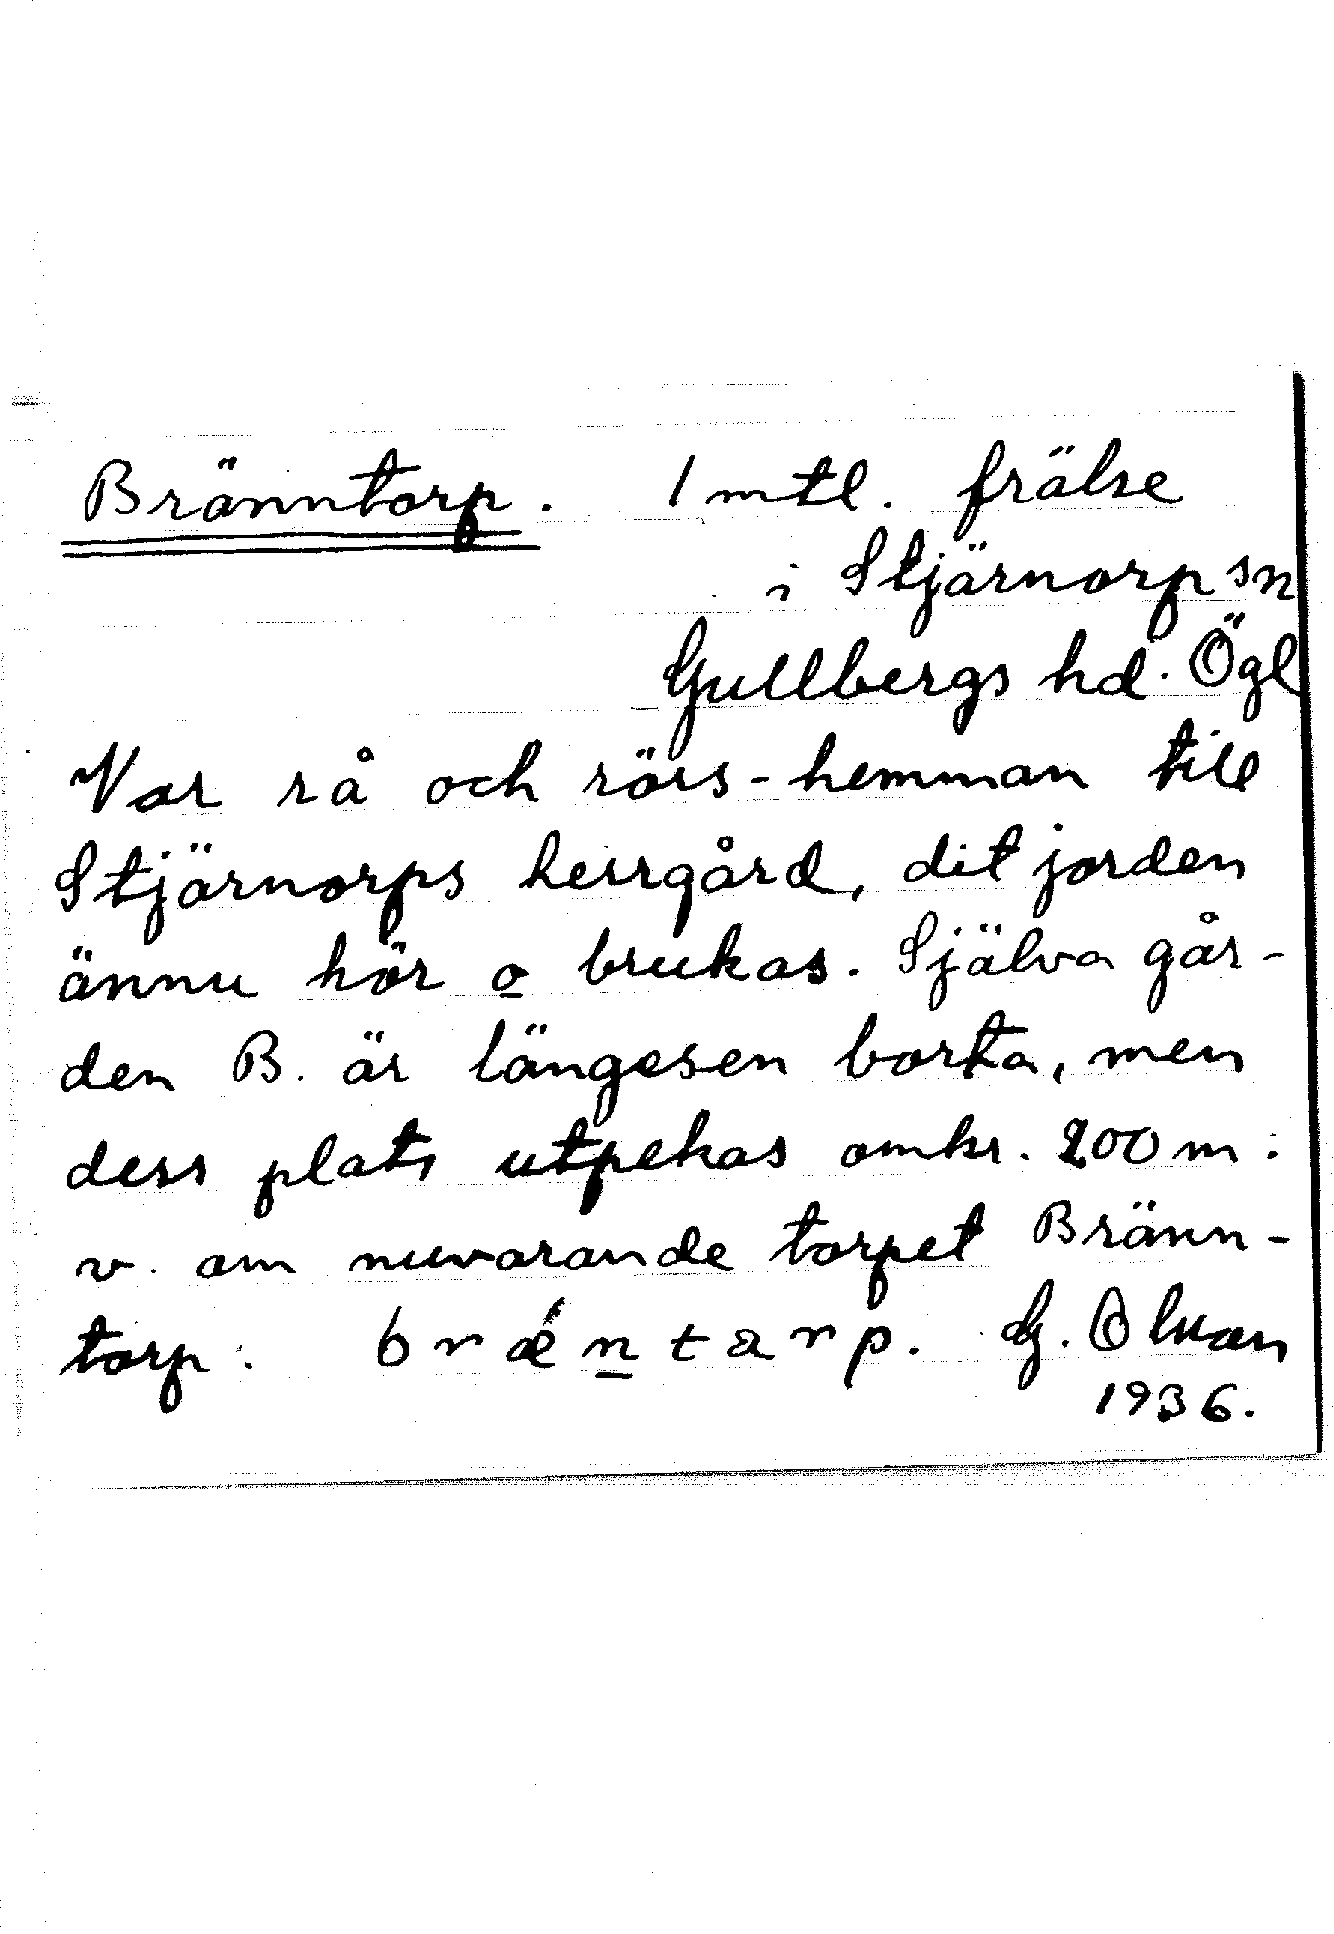 Bränntorp. 1 mtl. frälse
i Stjärnorp sn
Gullbergs hd. Ögl
Var rå och rörs-hemman till
Stjärnorps herrgård, dit jorden
ännu hör o brukas. Själva går-
den B. är längesen borta, men
dess plats utpekas omkr. 200 m.
v. om nuvarande torpet Bränn-
torp. brǽntarp. G. Olsson
1936.